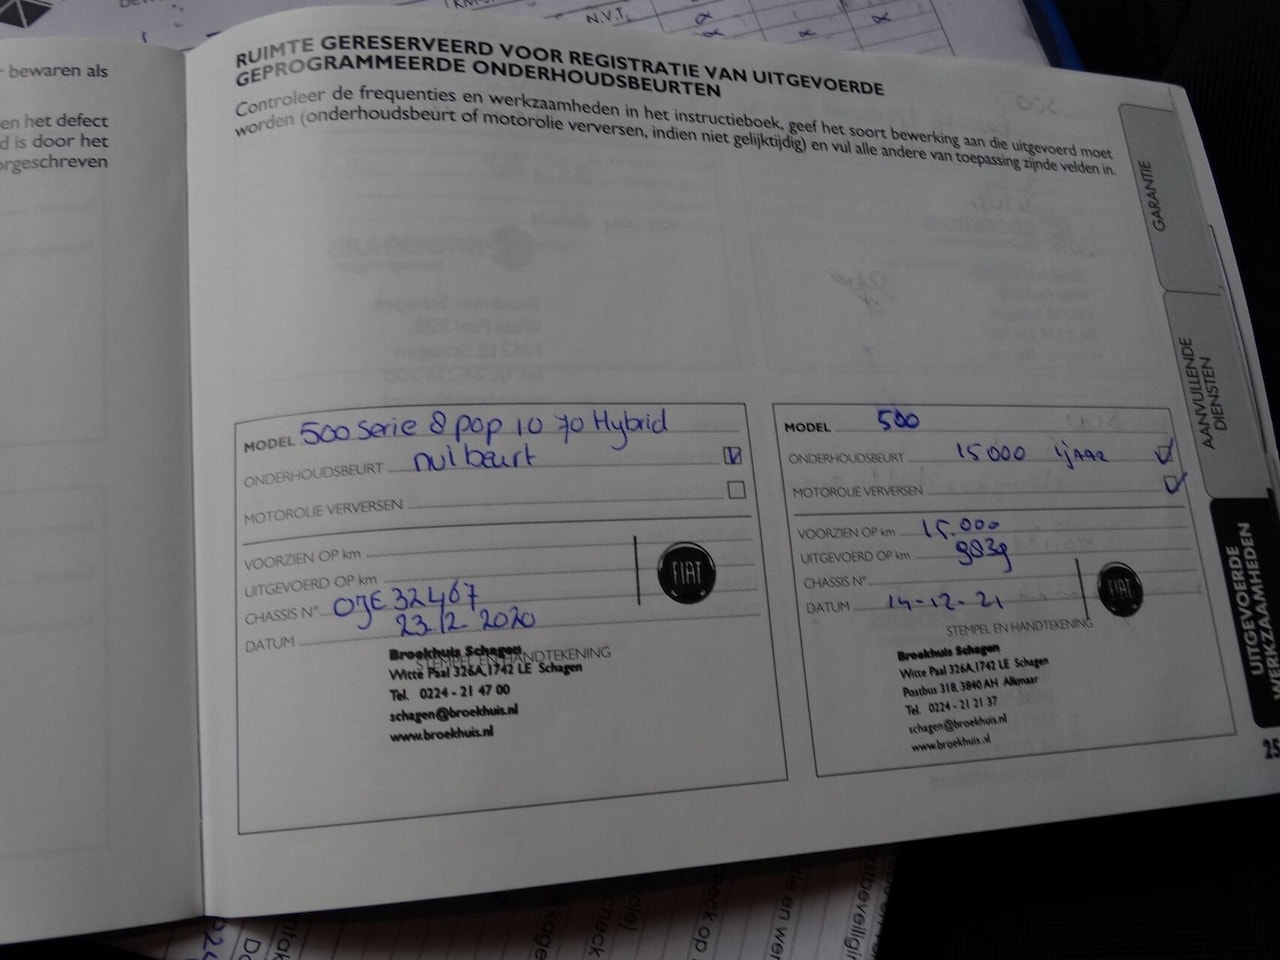 N.V.T.
r bewaren als
en het defect
d is door het
orgeschreven
RUIMTE GERESERVEERD VOOR REGISTRATIE VAN UITGEVOERDE
GEPROGRAMMEERDE ONDERHOUDSBEURTEN
Controleer de frequenties en werkzaamheden in het instructieboek, geef het soort bewerking aan die uitgevoerd moet
worden (onderhoudsbeurt of motorolie verversen, indien niet gelijktijdig) en vul alle andere van toepassing zijnde velden in.
GARANTIE
AANVULLENDE
DIENSTEN
UITGEVOERDE
WERKZAAMHEDEN
25
MODEL 500 Serie 8 pop 10 70 Hybrid
ONDERHOUDSBEURT nulbeurt
MOTOROLIE VERVERSEN
VOORZIEN OP km
UITGEVOERD OP km
CHASSIS N°. 0JE32467
DATUM 23.12 2020
FIAT
STEMPEL EN HANDTEKENING
Broekhuis Schagen
Witte Paal 326A,1742 LE Schagen
Tel. 0224 - 21 47 00
schagen@broekhuis.nl
www.broekhuis.nl
MODEL 500
ONDERHOUDSBEURT 15000 1jaar
MOTOROLIE VERVERSEN
VOORZIEN OP km 15.000
UITGEVOERD OP km 9839
CHASSIS N°.
DATUM 14-12-21
FIAT
STEMPEL EN HANDTEKENING
Broekhuis Schagen
Witte Paal 326A,1742 LE Schagen
Postbus 318, 3840 AH Alkmaar
Tel. 0224 - 21 21 37
schagen@broekhuis.nl
www.broekhuis.nl